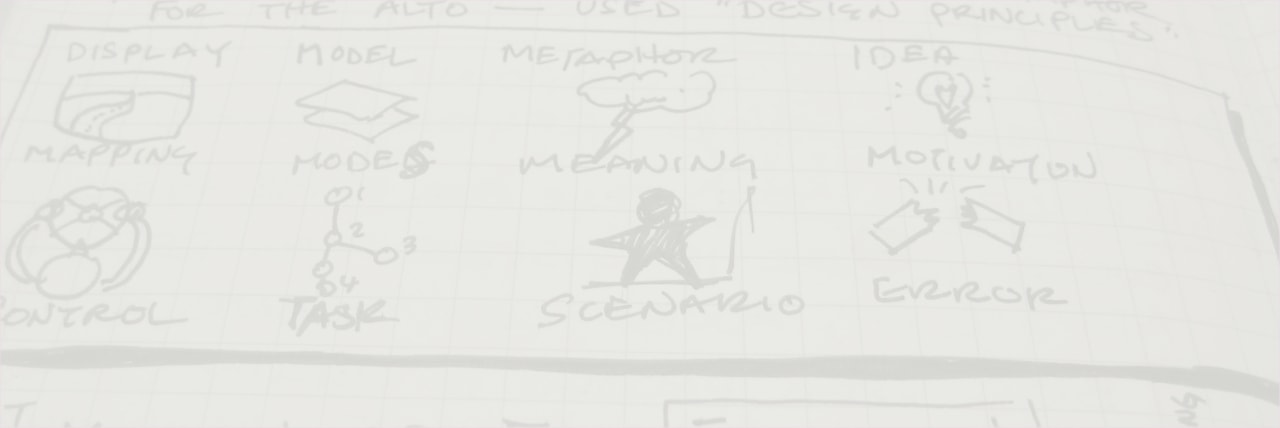 FOR THE ALTO — USED "DESIGN PRINCIPLES".
DISPLAY MODEL METAPHOR IDEA
MAPPING MODES MEANING MOTIVATION
1
2 3
4
CONTROL TASK SCENARIO ERROR